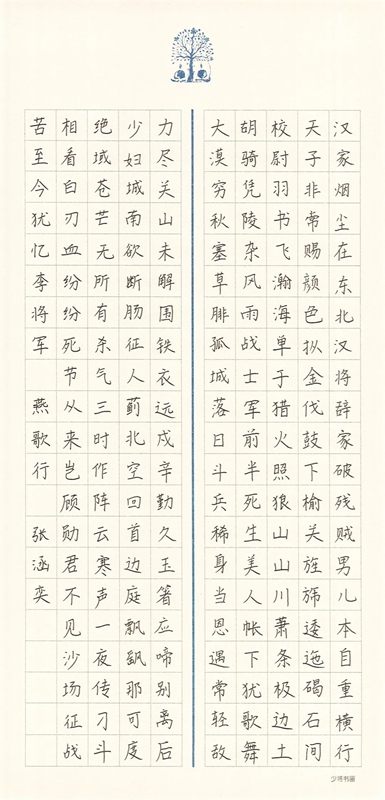 汉家烟尘在东北汉将辞家破残贼男儿本自重横行
天子非常赐颜色摐金伐鼓下榆关旌旆逶迤碣石间
校尉羽书飞瀚海单于猎火照狼山山川萧条极边土
胡骑凭陵杂风雨战士军前半死生美人帐下犹歌舞
大漠穷秋塞草腓孤城落日斗兵稀身当恩遇常轻敌
力尽关山未解围铁衣远戍辛勤久玉箸应啼别离后
少妇城南欲断肠征人蓟北空回首边庭飘飖那可度
绝域苍芒无所有杀气三时作阵云寒声一夜传刁斗
相看白刃血纷纷死节从来岂顾勋君不见沙场征战
苦至今犹忆李将军 燕歌行 张涵奕